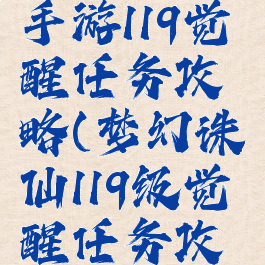 手游119觉
醒任务攻
略(梦幻诛
仙119级觉
醒任务攻